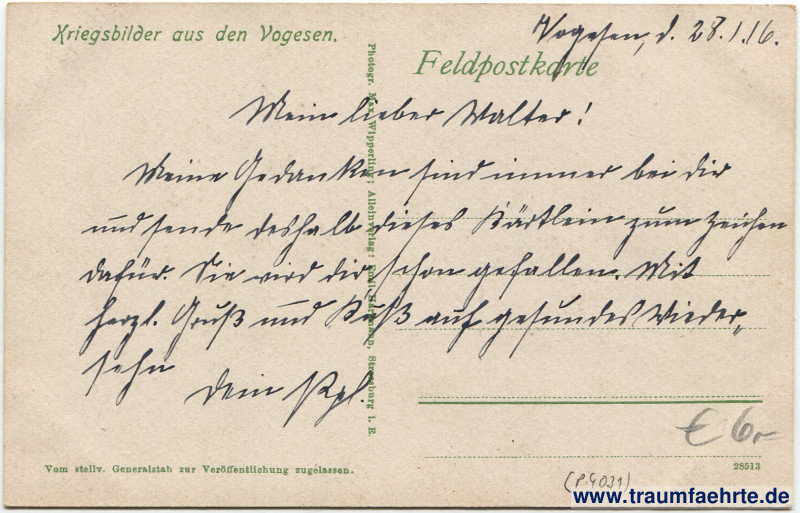 Kriegsbilder aus den Vogesen.
Vogesen, d. 28.1.16.
Feldpostkarte
Mein lieber Walter!
Meine Gedanken sind immer bei dir
und sende deshalb dieses Kärtlein zum Zeichen
dafür. Sie wird dir schon gefallen. Mit
herzl. Gruß und Kuß auf gesundes Wieder„
sehn
Dein
Photogr. Max Wipperling; Alleinverlag: Emil Hartmann, Strassburg i. E.
€ 6,-
Vom stellv. Generalstab zur Veröffentlichung zugelassen.
28513
(P.4031)
www.traumfaehrte.de